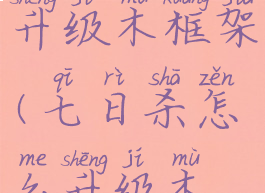 shēng jí mù kuàng jià
升级木框架
qī rì shā zěn
(七日杀怎
me shēng jí mù
么升级木